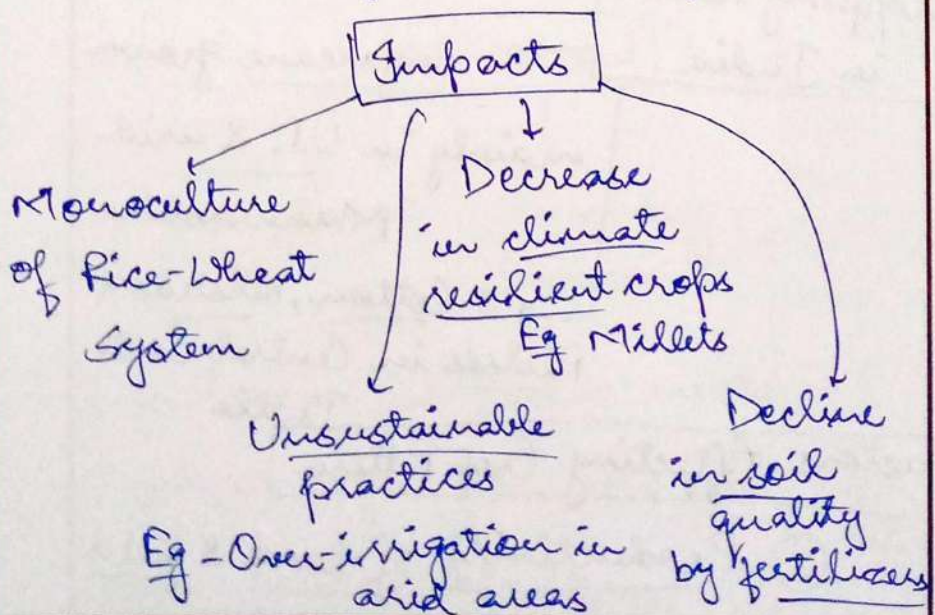 Impacts
Monoculture
of Rice-Wheat
System
Decrease
in climate
resilient crops
Eg Millets
Unsustainable
practices
Eg - Over-irrigation in
arid areas
Decline
in soil
quality
by fertilizers